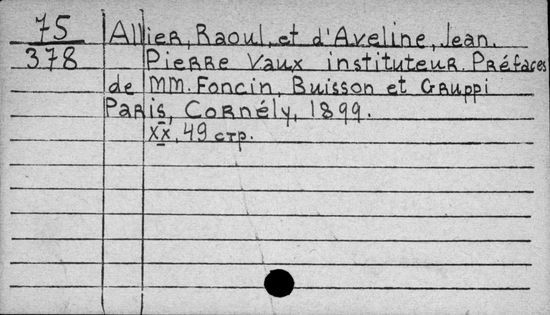 75
378
Allier, Raoul, et d'Aveline, Jean.
Pierre Vaux instituteur. Préfaces
de MM. Foncin, Buisson et Gruppi
Paris, Cornély, 1899.
XX, 49 стр.